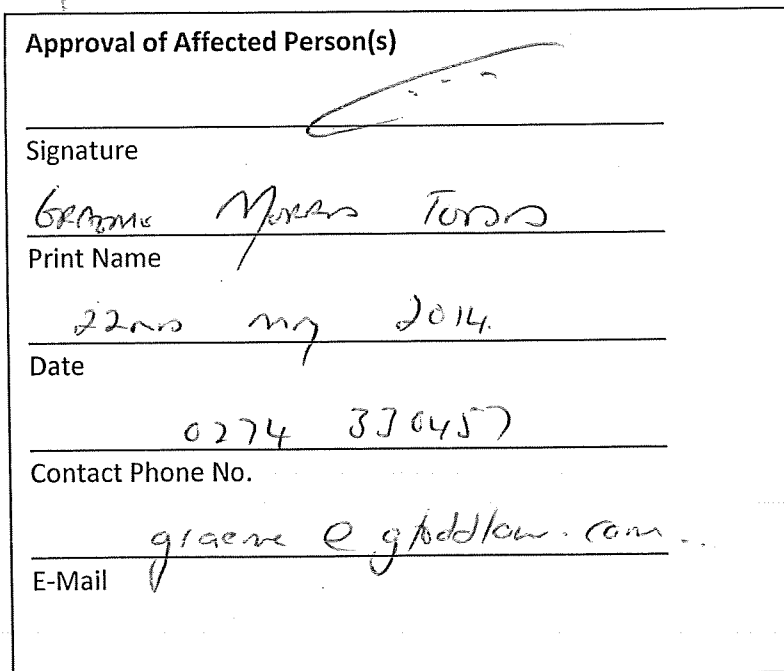 Approval of Affected Person(s)
Signature
GRAEME MORRIS TODD
Print Name
22ND MAY 2014.
Date
0274 330457
Contact Phone No.
graeme @ gtoddlaw.com..
E-Mail